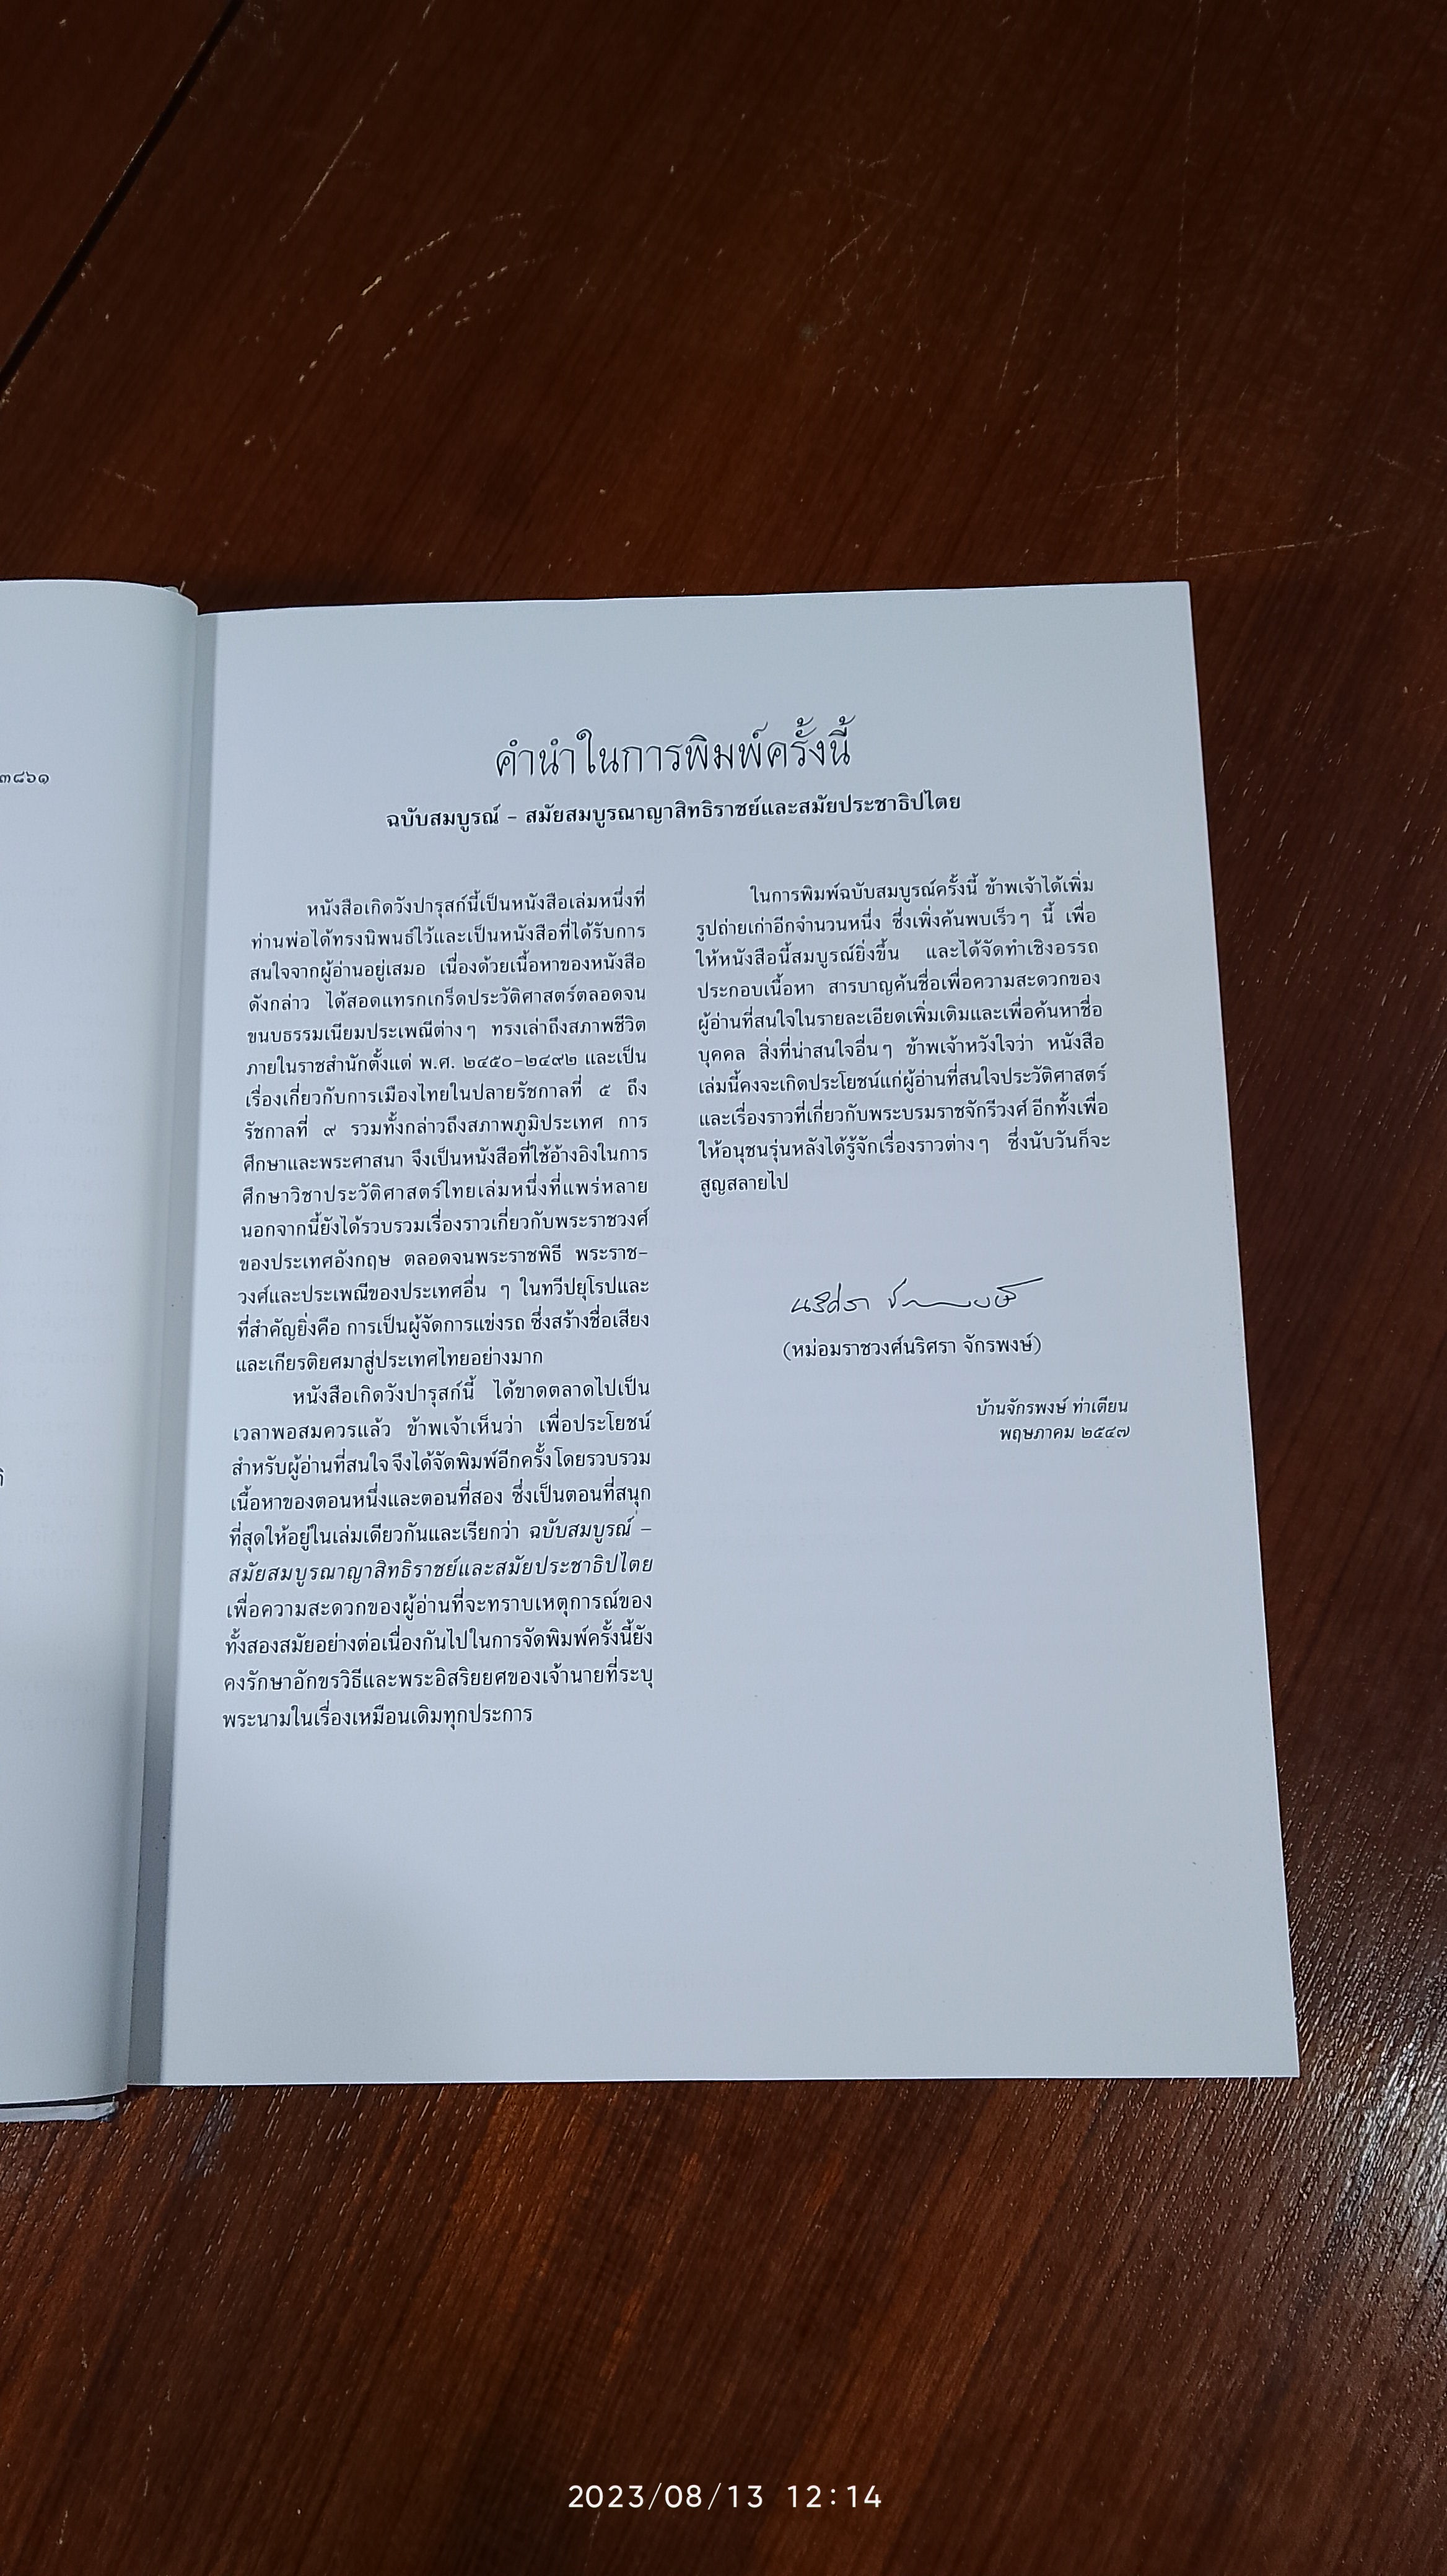 ๓๘๖๑
คำนำในการพิมพ์ครั้งนี้
ฉบับสมบูรณ์ – สมัยสมบูรณาญาสิทธิราชย์และสมัยประชาธิปไตย
หนังสือเกิดวังปารุสก์นี้เป็นหนังสือเล่มหนึ่งที่
ท่านพ่อได้ทรงนิพนธ์ไว้และเป็นหนังสือที่ได้รับการ
สนใจจากผู้อ่านอยู่เสมอ เนื่องด้วยเนื้อหาของหนังสือ
ดังกล่าว ได้สอดแทรกเกร็ดประวัติศาสตร์ตลอดจน
ขนบธรรมเนียมประเพณีต่างๆ ทรงเล่าถึงสภาพชีวิต
ภายในราชสำนักตั้งแต่ พ.ศ. ๒๔๕๐-๒๔๙๒ และเป็น
เรื่องเกี่ยวกับการเมืองไทยในปลายรัชกาลที่ ๕ ถึง
รัชกาลที่ ๙ รวมทั้งกล่าวถึงสภาพภูมิประเทศ การ
ศึกษาและพระศาสนา จึงเป็นหนังสือที่ใช้อ้างอิงในการ
ศึกษาวิชาประวัติศาสตร์ไทยเล่มหนึ่งที่แพร่หลาย
นอกจากนี้ยังได้รวบรวมเรื่องราวเกี่ยวกับพระราชวงศ์
ของประเทศอังกฤษ ตลอดจนพระราชพิธี พระราช-
วงศ์และประเพณีของประเทศอื่น ๆ ในทวีปยุโรปและ
ที่สำคัญยิ่งคือ การเป็นผู้จัดการแข่งรถ ซึ่งสร้างชื่อเสียง
และเกียรติยศมาสู่ประเทศไทยอย่างมาก
หนังสือเกิดวังปารุสก์นี้ ได้ขาดตลาดไปเป็น
เวลาพอสมควรแล้ว ข้าพเจ้าเห็นว่า เพื่อประโยชน์
สำหรับผู้อ่านที่สนใจ จึงได้จัดพิมพ์อีกครั้งโดยรวบรวม
เนื้อหาของตอนหนึ่งและตอนที่สอง ซึ่งเป็นตอนที่สนุก
ที่สุดให้อยู่ในเล่มเดียวกันและเรียกว่า ฉบับสมบูรณ์ –
สมัยสมบูรณาญาสิทธิราชย์และสมัยประชาธิปไตย
เพื่อความสะดวกของผู้อ่านที่จะทราบเหตุการณ์ของ
ทั้งสองสมัยอย่างต่อเนื่องกันไปในการจัดพิมพ์ครั้งนี้ยัง
คงรักษาอักขรวิธีและพระอิสริยยศของเจ้านายที่ระบุ
พระนามในเรื่องเหมือนเดิมทุกประการ
ในการพิมพ์ฉบับสมบูรณ์ครั้งนี้ ข้าพเจ้าได้เพิ่ม
รูปถ่ายเก่าอีกจำนวนหนึ่ง ซึ่งเพิ่งค้นพบเร็วๆ นี้ เพื่อ
ให้หนังสือนี้สมบูรณ์ยิ่งขึ้น และได้จัดทำเชิงอรรถ
ประกอบเนื้อหา สารบาญค้นชื่อเพื่อความสะดวกของ
ผู้อ่านที่สนใจในรายละเอียดเพิ่มเติมและเพื่อค้นหาชื่อ
บุคคล สิ่งที่น่าสนใจอื่นๆ ข้าพเจ้าหวังใจว่า หนังสือ
เล่มนี้คงจะเกิดประโยชน์แก่ผู้อ่านที่สนใจประวัติศาสตร์
และเรื่องราวที่เกี่ยวกับพระบรมราชจักรีวงศ์ อีกทั้งเพื่อ
ให้อนุชนรุ่นหลังได้รู้จักเรื่องราวต่างๆ ซึ่งนับวันก็จะ
สูญสลายไป
นริศรา จักรพงษ์
(หม่อมราชวงศ์นริศรา จักรพงษ์)
บ้านจักรพงษ์ ท่าเตียน
พฤษภาคม ๒๕๔๗
2023/08/13 12:14